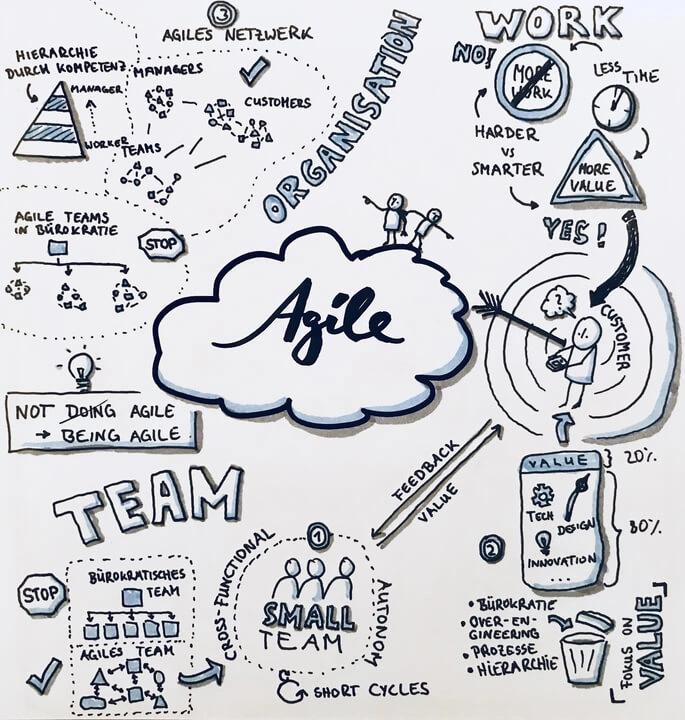 3
AGILES NETZWERK
HIERARCHIE
DURCH KOMPETENZ
MANAGER
WORKER
MANAGERS
CUSTOMERS
TEAMS
ORGANISATION
AGILE TEAMS
IN BÜROKRATIE
STOP
NOT DOING AGILE
→ BEING AGILE
WORK
NO!
MORE
WORK
LESS TIME
HARDER
VS
SMARTER
MORE
VALUE
YES!
Agile
?
CUSTOMER
FEEDBACK
VALUE
TEAM
STOP
BÜROKRATISCHES
TEAM
AGILES TEAM
1
CROSS-FUNCTIONAL
AUTONOM
SMALL
TEAM
SHORT CYCLES
2
VALUE
20%
TECH
DESIGN
INNOVATION
...
80%
• BÜROKRATIE
• OVER-EN-
GINEERING
• PROZESSE
• HIERARCHIE
FOKUS ON
VALUE